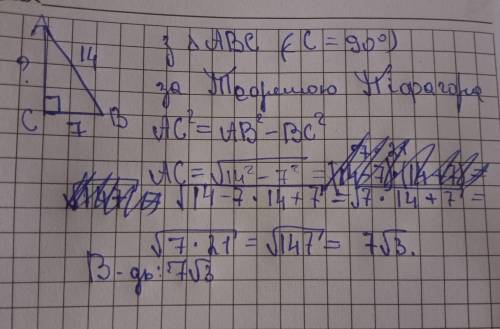 A
14
?
C
7
B
з △ABC (∠C = 90°)
за Теоремою Піфагора
AC² = AB² - BC²
AC = √14² - 7² =
= √14 - 7 · 14 + 7 = √7 · 14 + 7 =
√7 · 21 = √147 = 7√3.
В-дь: 7√3